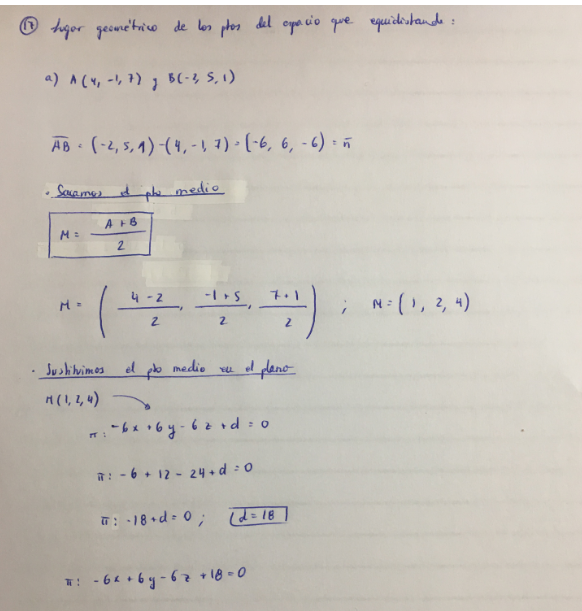 17 Lugar geométrico de los ptos del espacio que equidistande :
a) A(4, -1, 7) y B(-2, 5, 1)
AB = (-2, 5, 1) - (4, -1, 7) = (-6, 6, -6) = n
· Sacamos el pto medio
M = A + B / 2
M = ( 4 - 2 / 2 , -1 + 5 / 2 , 7 + 1 / 2 ) ; M = ( 1 , 2 , 4 )
· Sustituimos el pto medio en el plano
M(1, 2, 4)
π: -6x + 6y - 6z + d = 0
π: -6 + 12 - 24 + d = 0
π: -18 + d = 0 ; d = 18
π: -6x + 6y - 6z + 18 = 0